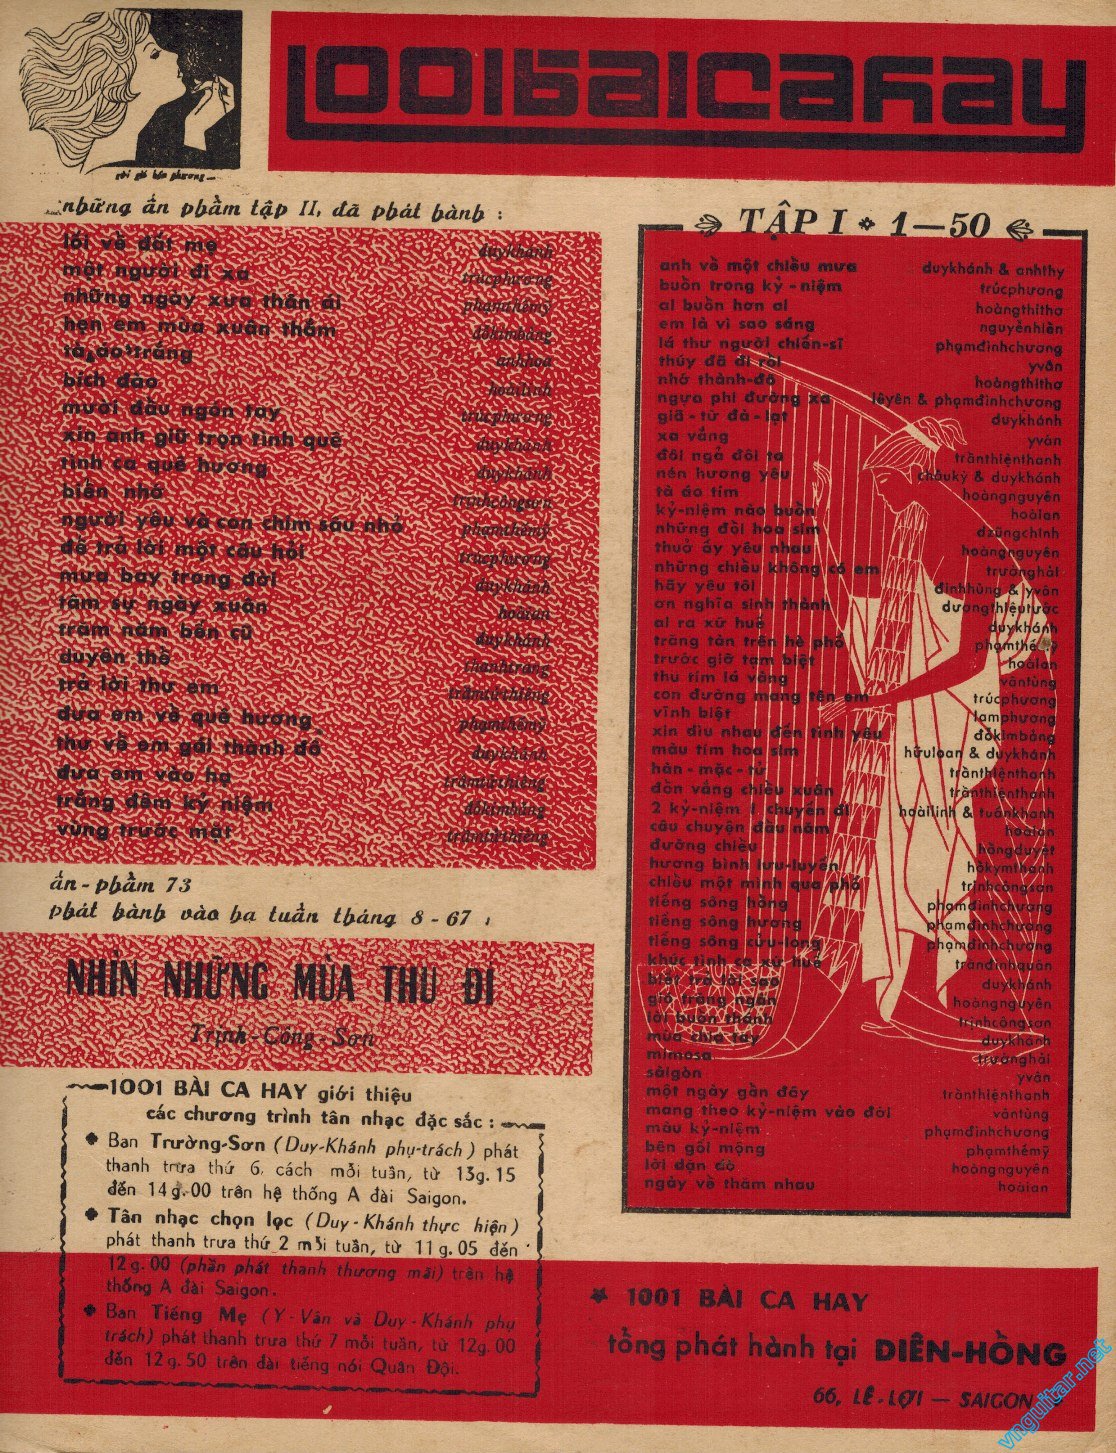 1001 bài ca hay
những ấn phẩm tập II, đã phát hành :
lối về đất mẹ duykhánh
một người đi xa trúcphương
những ngày xưa thân ái phạmthếmỹ
hẹn em mùa xuân thắm đỗkimbảng
tà áo trắng anhhoa
bích đào hoàilinh
mười đầu ngón tay trúcphương
xin anh giữ trọn tình quê duykhánh
tình ca quê hương duykhánh
biển nhớ trịnhcôngsơn
người yêu và con chim sâu nhỏ phạmthếmỹ
để trả lời một câu hỏi trúcphương
mưa bay trong đời duykhánh
tâm sự ngày xuân hoàian
trăm năm bến cũ duykhánh
duyên thề thanhtrang
trả lời thư em trầmtửthiêng
đưa em về quê hương phạmthếmỹ
thư về em gái thành đô duykhánh
đưa em vào hạ trầmtửthiêng
trắng đêm kỷ niệm đỗkimbảng
vùng trước mặt trầmtửthiêng
ấn-phẩm 73
phát hành vào ba tuần tháng 8 - 67 :
NHÌN NHỮNG MÙA THU ĐI
Trịnh-Công-Sơn
1001 BÀI CA HAY giới thiệu
các chương trình tân nhạc đặc sắc :
Ban Trường-Sơn (Duy-Khánh phụ-trách) phát
thanh trưa thứ 6, cách mỗi tuần, từ 13g.15
đến 14g.00 trên hệ thống A đài Saigon.
Tân nhạc chọn lọc (Duy-Khánh thực hiện)
phát thanh trưa thứ 2 mỗi tuần, từ 11g.05 đến
12g.00 (phần phát thanh thương mãi) trên hệ
thống A đài Saigon.
Ban Tiếng Mẹ (Y-Vân và Duy-Khánh phụ
trách) phát thanh trưa thứ 7 mỗi tuần, từ 12g.00
đến 12g.50 trên đài tiếng nói Quân Đội.
TẬP I * 1—50
anh về một chiều mưa duykhánh & anhthy
buồn trong kỷ-niệm trúcphương
ai buồn hơn ai hoàngthithơ
em là vì sao sáng nguyễnhiền
lá thư người chiến-sĩ phạmđìnhchương
thúy đã đi rồi yvân
nhớ thành-đô hoàngthithơ
ngựa phi đường xa lêyên & phạmđìnhchương
giã-từ đà-lạt duykhánh
xa vắng yvân
đôi ngả đôi ta trầnthiệnthanh
nén hương yêu châukỳ & duykhánh
tà áo tím hoàngnguyên
kỷ-niệm nào buồn hoàian
những đồi hoa sim dzũngchinh
thuở ấy yêu nhau hoàngnguyên
những chiều không có em trườnghải
hãy yêu tôi đinhhùng & yvân
ơn nghĩa sinh thành dươngthiệutước
ai ra xứ huế duykhánh
trăng tàn trên hè phố phạmthếmỹ
trước giờ tạm biệt hoàian
thu rơi lá vàng văntùng
con đường mang tên em trúcphương
vĩnh biệt lamphương
xin dìu nhau đến tình yêu đỗkimbảng
màu tím hoa sim hữuloan & duykhánh
hàn-mặc-tử trầnthiệnthanh
đồn vắng chiều xuân trầnthiệnthanh
2 kỷ-niệm 1 chuyến đi hoàilinh & tuấnkhanh
câu chuyện đầu năm hoàian
đường chiều hằngduyệt
hương bình lưu-luyến hồkymthanh
chiều một mình qua phố trịnhcôngsơn
tiếng sông hồng phạmđìnhchương
tiếng sông hương phạmđìnhchương
tiếng sông cửu-long phạmđìnhchương
khúc tình ca xứ huế trầnđìnhquân
biết trả lời sao duykhánh
gió trăng ngàn hoàngnguyên
lời buồn thánh trịnhcôngsơn
mùa chia tay duykhánh
mimosa trườnghải
sàigòn yvân
một ngày gần đây trầnthiệnthanh
mang theo kỷ-niệm vào đời văntùng
màu kỷ-niệm phạmđìnhchương
bên gối mộng phạmthếmỹ
lời dặn dò hoàngnguyên
ngày về thăm nhau hoàian
1001 BÀI CA HAY
tổng phát hành tại DIÊN-HỒNG
66, LÊ-LỢI — SAIGON
vnguitar.net